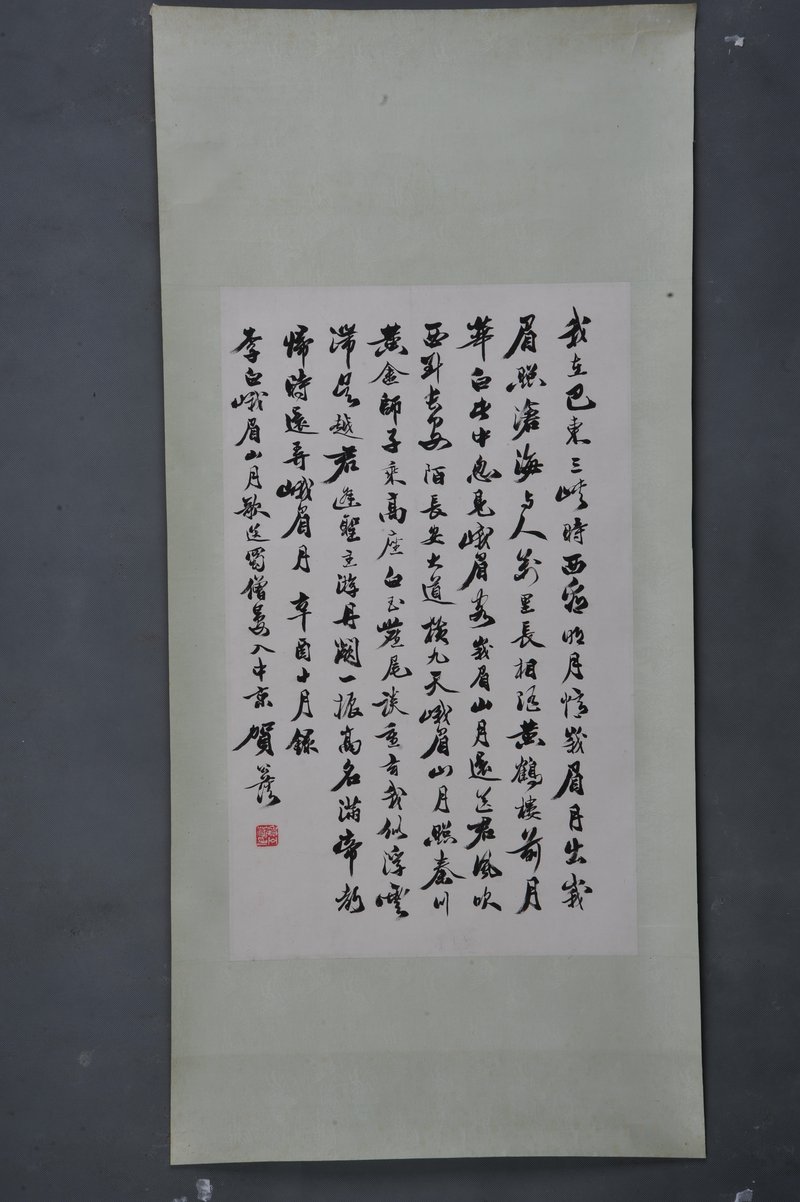 我在巴東三峽時西看明月憶峨眉月出峨
眉照滄海与人萬里長相隨黄鶴樓前月
華白此中忽見峨眉客峨眉山月還送君風吹
西到長安陌長安大道橫九天峨眉山月照秦川
黄金師子乘高座白玉麈尾談重玄我似浮雲
滯吴越君逢聖主游丹闕一振高名滿帝都
歸時還弄峨眉月 辛酉十月錄
李白峨眉山月歌送蜀僧晏入中京 賀